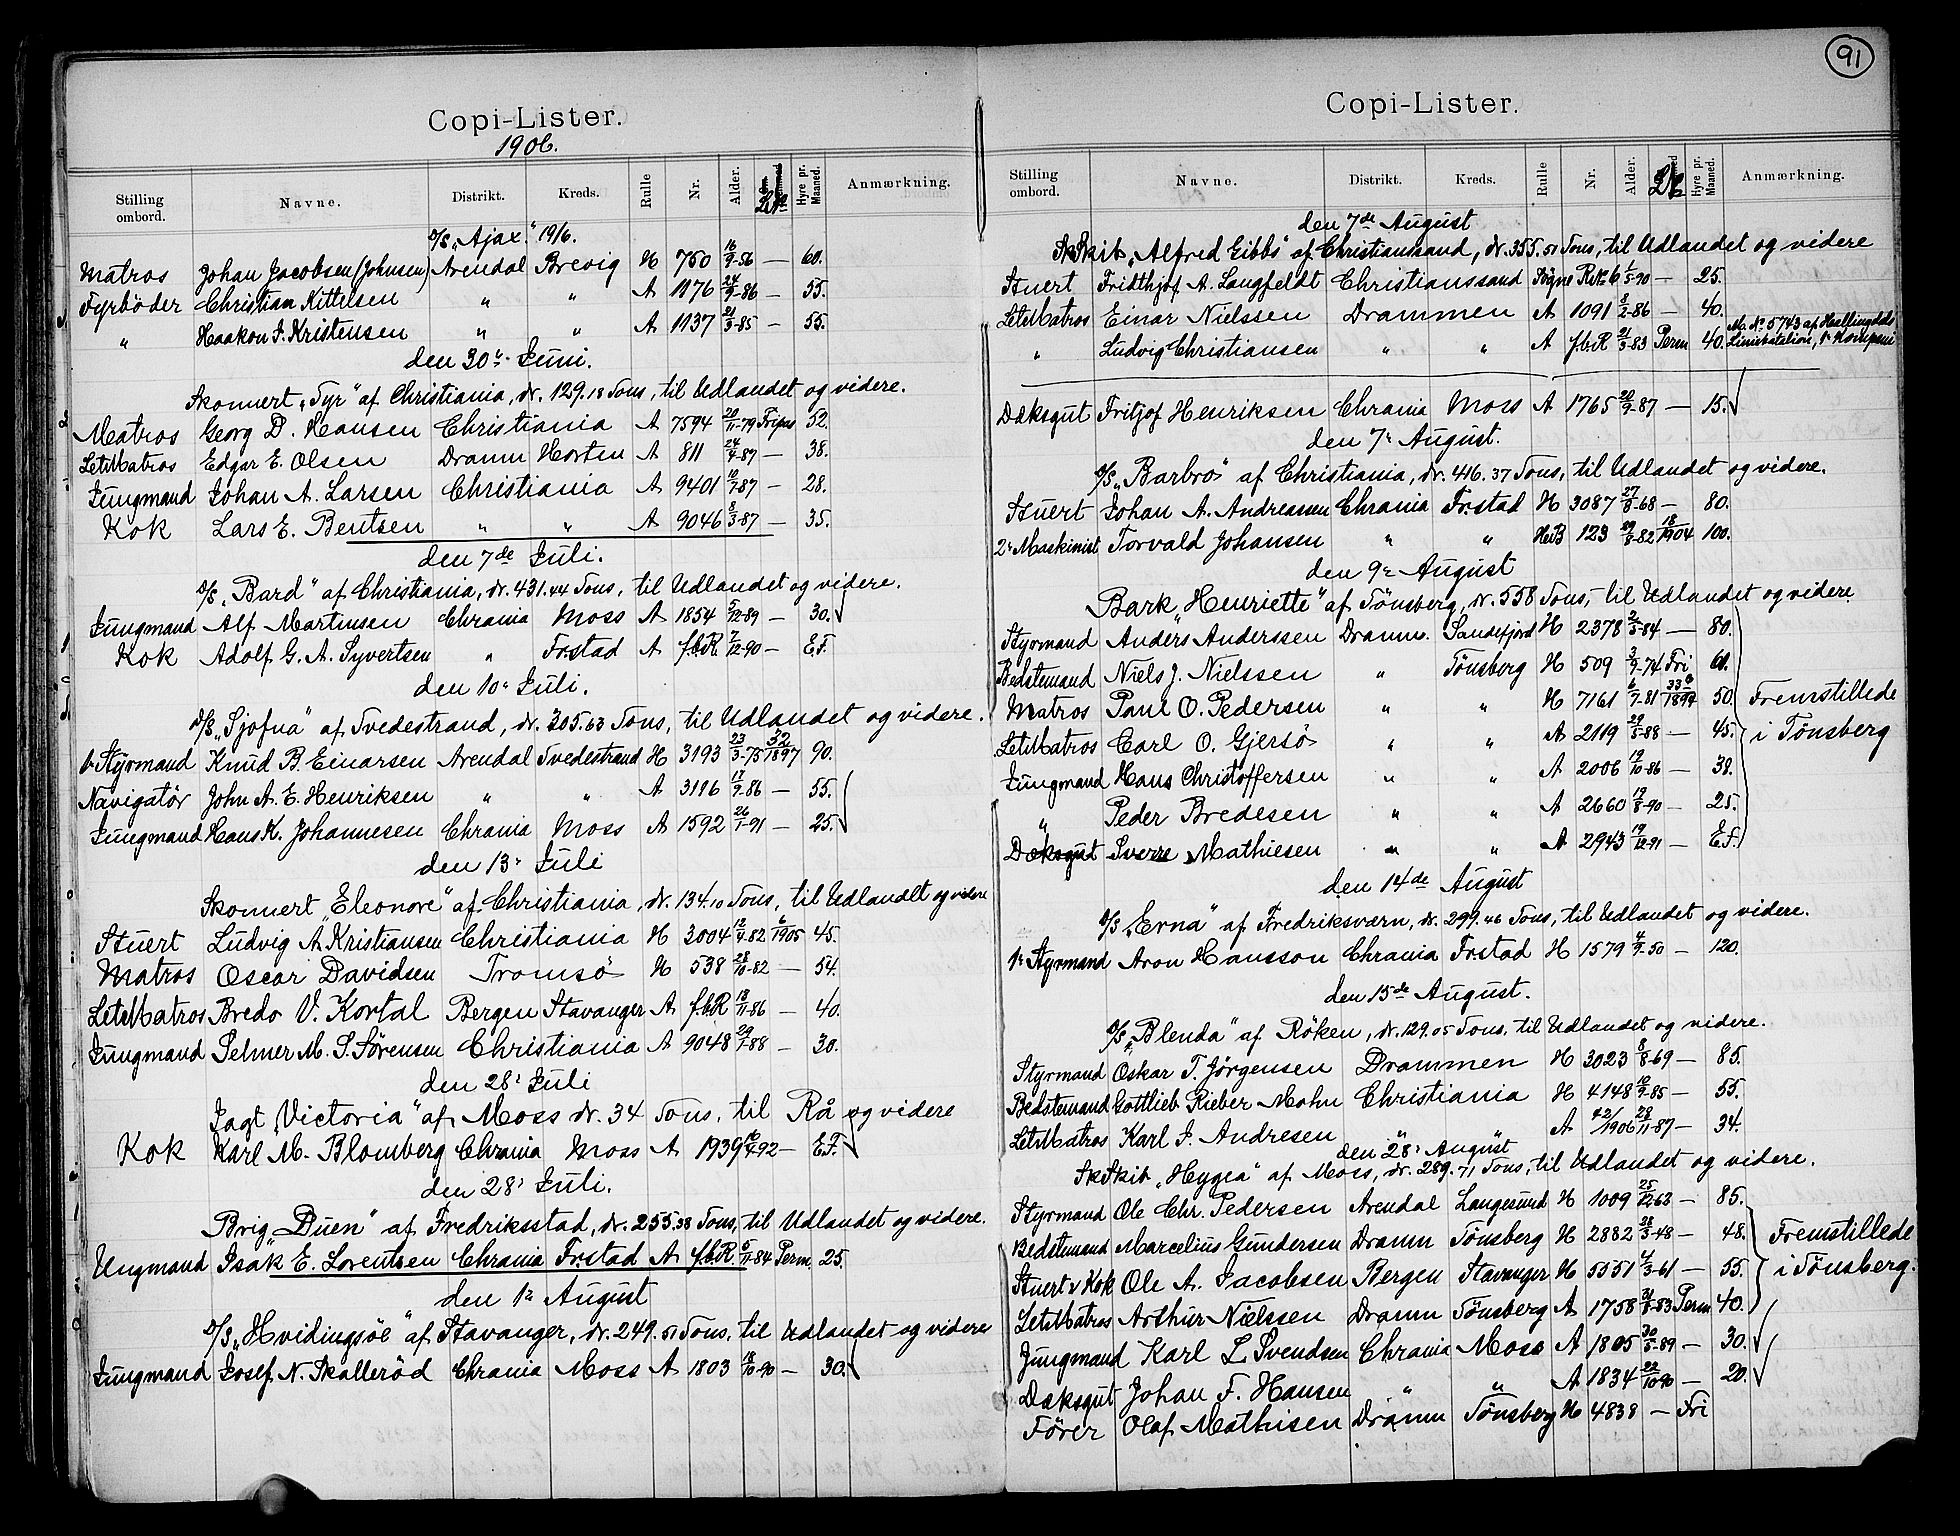 Copi-Lister.
1906.
Stilling ombord. Navne. Distrikt. Kreds. Rulle Nr. Alder. Hyre pr. Maaned. Anmærkning.
D/S „Ajax" 19/6.
Matros Johan Jacobsen (Johnsen) Arendal Brevig H 750 16/9-56 — 60.
Fyrböder Christian Kittelsen " " A 1176 24/9-86 — 55.
" Haakon J. Kristensen " " A 1137 21/3-85 — 55.
den 30te Juni.
Skonnert „Tyr" af Christiania, dr. 129.18 Tons, til Udlandet og videre.
Matros Georg D. Hansen Christiania A 7594 20/11-79 Tripas 52.
LetMatros Edgar E. Olsen Dramm Horten A 811 24/4-87 — 38.
Jungmand Johan A. Larsen Christiania A 9401 10/7-87 — 28.
Kok Lars E. Bentsen " " A 9046 8/3-87 — 35.
den 7de Juli.
D/S „Bard" af Christiania, dr. 431.44 Tons, til Udlandet og videre.
Jungmand Alf Martinsen Chrania Moss A 1854 5/12-89 — 30.
Kok Adolf G. A. Syvertsen " Frstad A f.b.R 7/12-90 — E.F.
den 10de Juli.
D/S „Sjofna" af Tvedestrand, dr. 305.63 Tons, til Udlandet og videre.
1ste Styrmand Knud B. Einarsen Arendal Tvedestrand H 3193 23/3-75 32/1897 90.
Navigatör John A. E. Henriksen " " A 3116 17/9-86 — 55.
Jungmand Hans K. Johannesen Chrania Moss A 1592 26/1-91 — 25.
den 13de Juli
Skonnert „Eleonore" af Christiania, dr. 134.10 Tons, til Udlandet og videre
Stuert Ludvig A. Kristiansen Christiania H 3004 12/4-82 6/1905 45.
Matros Oscar Davidsen Tromsö H 538 28/10-82 — 54.
LetMatros Bredo V. Kortal Bergen Stavanger A f.b.R 18/11-86 — 40.
Jungmand Selmer M. S. Sörensen Christiania A 9048 29/1-88 — 30.
den 28de Juli
Jagt „Victoria" af Moss dr. 34 Tons, til Rå og videre
Kok Karl M. Blomberg Chrania Moss A 1939 16/4-92 — E.F.
den 28de Juli.
Brig „Duen" af Fredriksstad, dr. 255.38 Tons, til Udlandet og videre.
Ungmand Isak E. Lorentsen Chrania Frstad A f.b.R. 5/11-84 Perm. 25.
den 1ste August
D/S „Hvidingsöe" af Stavanger, dr. 249.51 Tons, til Udlandet og videre
Jungmand Josef N. Skalleröd Chrania Moss A 1803 18/10-90 — 30.
91
Copi-Lister.
Stilling ombord. Navne. Distrikt. Kreds. Rulle Nr. Alder. Hyre pr. Maaned. Anmærkning.
den 7de August
SkSkib „Alfred Gibbs" af Christianssand, dr. 355.51 Tons, til Udlandet og videre
Stuert Fridthjof A. Langfeldt Christianssand Sögne 1/5-90 — 25.
LetMatros Einar Nielssen Drammen A 1091 8/2-86 — 40.
" Ludvig Christiansen " " A f.b.R 21/3-83 Perm 40. M. No 5743 af Hallingdals Liniebatalion, 1ste Kompani
Dæksgut Fritjof Henriksen Chrania Moss A 1765 20/9-87 — 15.
den 7de August.
D/S „Barbro" af Christiania, dr. 416.37 Tons, til Udlandet og videre.
Stuert Johan A. Andreassen Chrania Frstad H 3087 27/8-68 — 80.
2den Maskinist Torvald Johansen " " 123 29/8-82 18/1904 100.
den 9de August
Bark „Henriette" af Tönsberg, dr. 558 Tons, til Udlandet og videre
Styrmand Anders Anderssen Dramm. Sandefjord H 2378 2/5-84 — 80.
Bedstemand Niels J. Nielssen " Tönsberg H 509 3/9-74 Fri 60.
Matros Paul O. Pedersen " " H 7161 6/7-81 50. Fremstillede
LetMatros Carl O. Gjersö " " A 2119 29/5-88 — 45. i Tönsberg
Jungmand Hans Christoffersen " " A 2006 19/10-86 — 38.
" Peder Bredesen " " A 2660 19/8-90 — 25.
Dæksgut Sverre Mathiesen " " A 2943 19/12-91 — E.F.
den 14de August
D/S „Erna" af Fredriksværn, dr. 299.46 Tons, til Udlandet og videre.
1ste Styrmand Aron Hansson Chrania Frstad H 1579 4/9-50 — 120.
den 15de August.
D/S „Blenda" af Röken, dr. 129.05 Tons, til Udlandet og videre.
Styrmand Oskar T. Jörgensen Drammen H 3023 8/8-69 — 85.
Bedstemand Gottlieb Rieber Mohn Christiania H 4148 10/9-85 — 55.
LetMatros Karl J. Andresen " " A 42/1906 28/11-87 — 34.
den 28de August
SkSkib „Hygea" af Moss, dr. 289.71 Tons, til Udlandet og videre.
Styrmand Ole Chr. Pedersen Arendal Langesund H 1009 25/12-63 — 85.
Bedstemand Marcelius Gundersen Dramm Tönsberg H 2882 28/3-48 — 48. Fremstillede
Stuert v Kok Ole A. Jacobsen Bergen Stavanger H 5551 4/3-61 — 55. i Tönsberg.
LetMatros Arthur Nielssen Dramm Tönsberg A 1758 31/8-83 Perm 40.
Jungmand Karl L Svendsen Chrania Moss A 1805 30/5-89 — 30.
Dæksgut Johan F. Hansen " " A 1834 22/10-90 — 20.
Förer Olaf Mathisen Dramm Tönsberg H 4838 — Fri